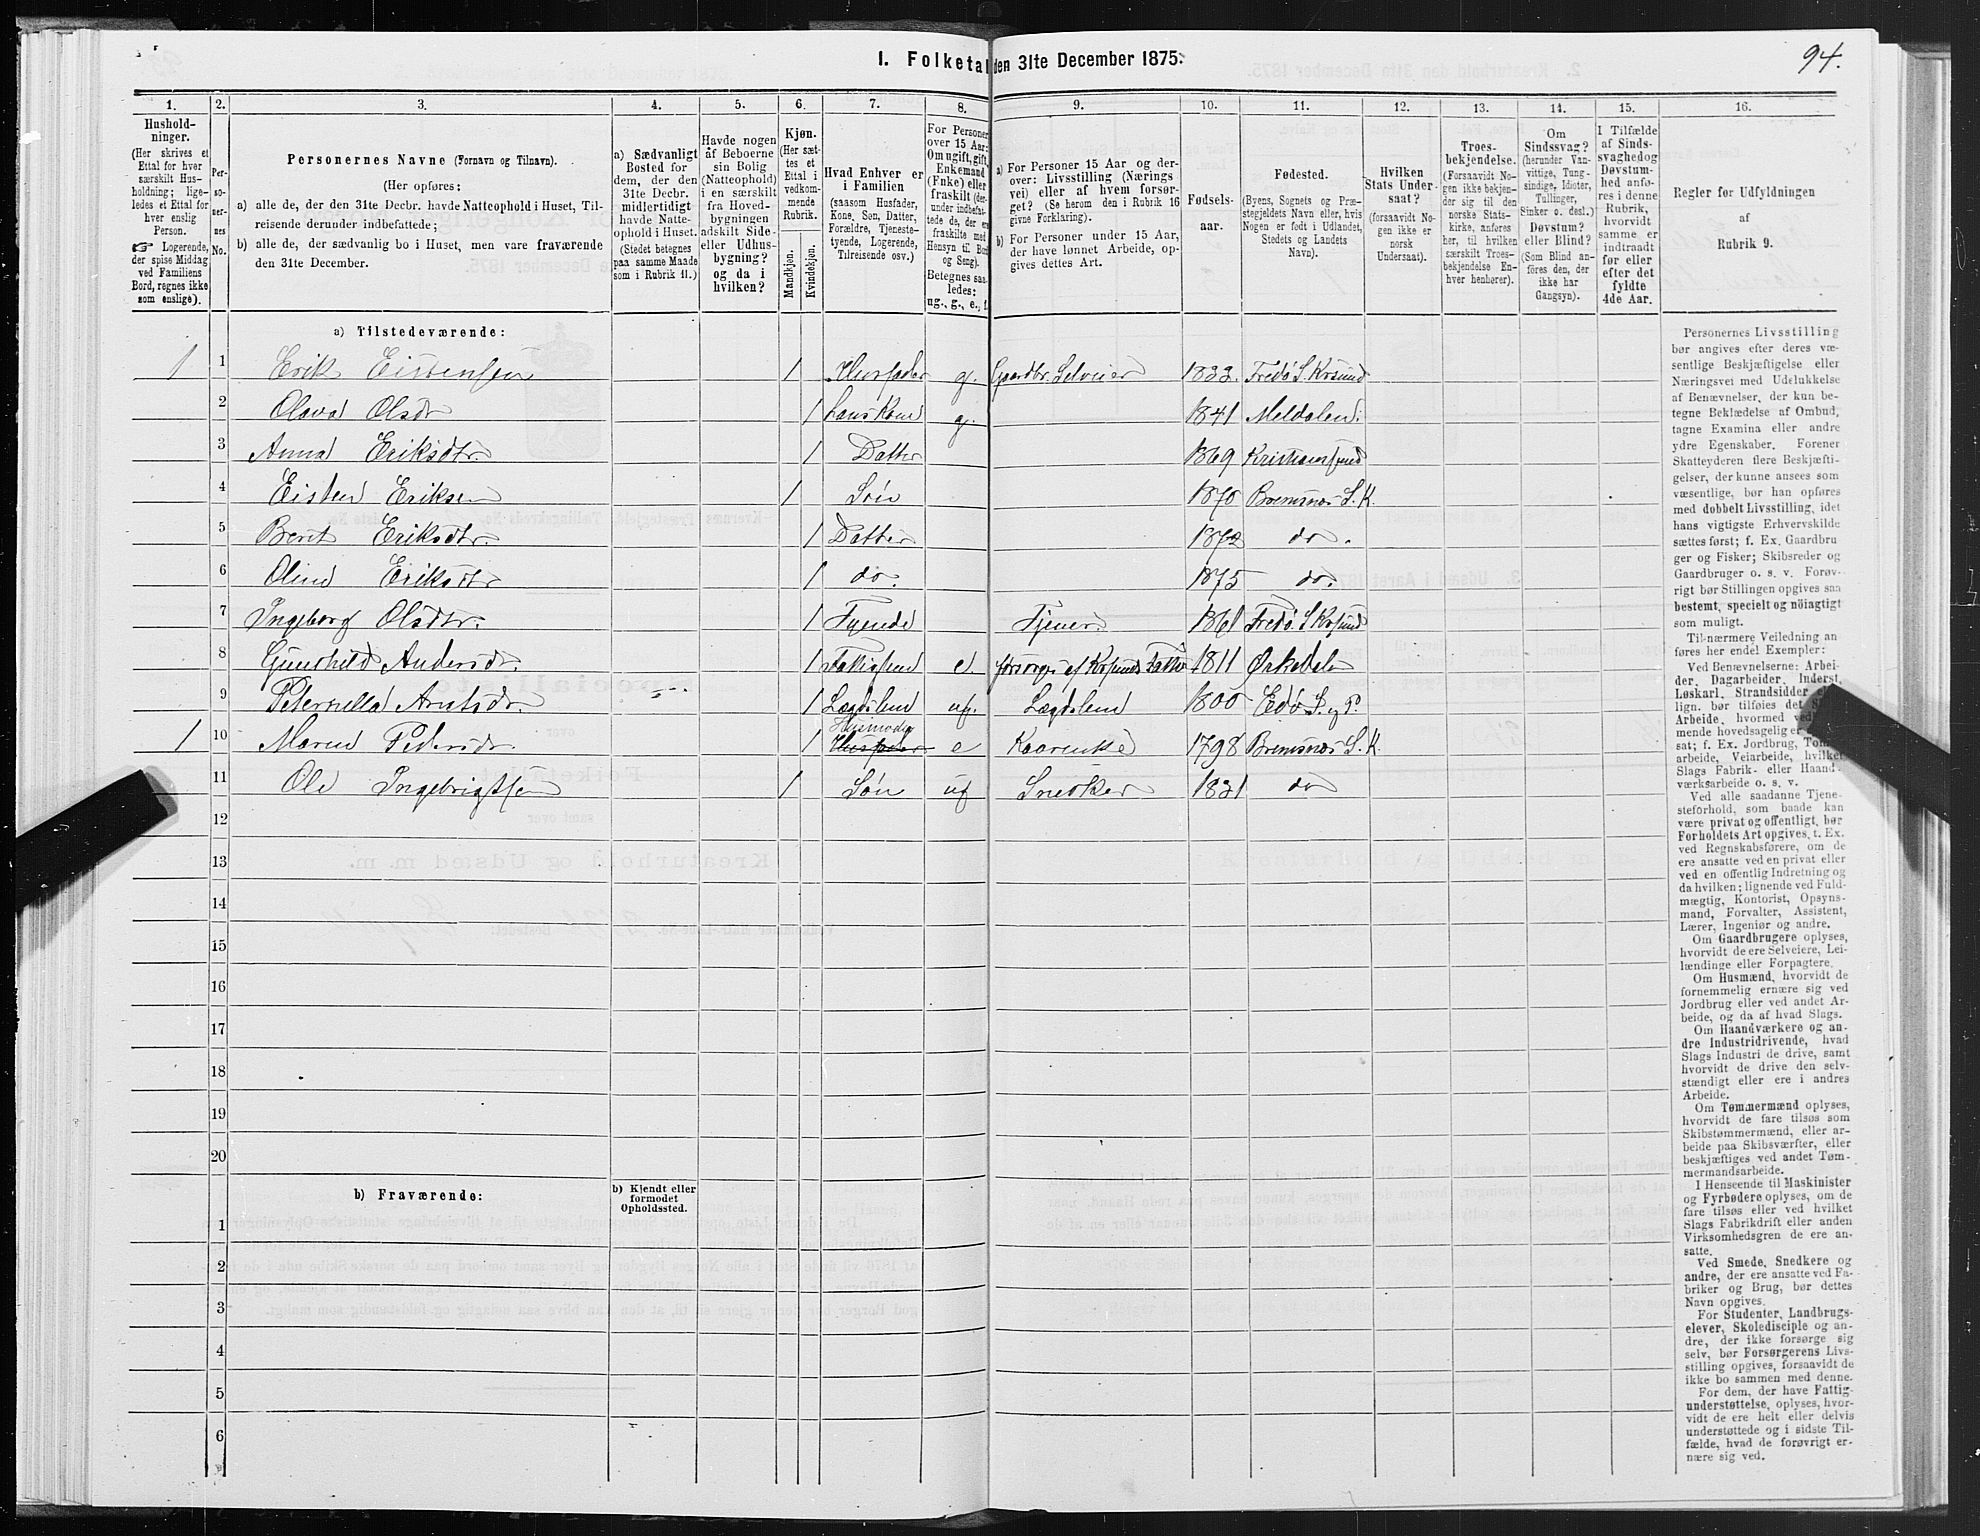 94.
1. Folketal den 31te December 1875.
1.
2.
3.
4.
5.
6.
7.
8.
9.
10.
11.
12.
13.
14.
15.
16.
Hushold-
ninger.
(Her skrives et
Ettal for hver
særskilt Hus-
holdning; lige-
ledes et Ettal for
hver enslig
Person.
☞ Logerende,
der spise Middag
ved Familiens
Bord, regnes ikke
som enslige).
Per-
so-
ner-
nes
No.
Personernes Navne (Fornavn og Tilnavn).
(Her opføres:
a) alle de, der den 31te Decbr. havde Natteophold i Huset, Til-
reisende derunder indbefattede;
b) alle de, der sædvanlig bo i Huset, men vare fraværende
den 31te December.
a) Sædvanligt
Bosted for
dem, der den
31te Decbr.
midlertidigt
havde Natte-
ophold i Huset.
(Stedet betegnes
paa samme Maade
som i Rubrik 11.)
Havde nogen
af Beboerne
sin Bolig
(Natteophold)
i en særskilt
fra Hoved-
bygningen
adskilt Side-
eller Udhus-
bygning?
og da i
hvilken?
Kjøn.
(Her sæt-
tes et
Ettal i
vedkom-
mende
Rubrik.
Mandkjøn.
Kvindekjøn.
Hvad Enhver er
i Familien
(saasom Husfader,
Kone, Søn, Datter,
Forældre, Tjeneste-
tyende, Logerende,
Tilreisende osv.)
For Personer
over 15 Aar:
Om ugift, gift,
Enkemand
(Enke) eller
fraskilt (der-
under indbefat-
tede de, der ere
fraskilte med
Hensyn til Bord
og Seng).
Betegnes saa-
ledes:
ug., g., e., f.
a) For Personer 15 Aar og der-
over: Livsstilling (Nærings
vei) eller af hvem forsør-
get? (Se herom den i Rubrik 16
givne Forklaring).
b) For Personer under 15 Aar,
der have lønnet Arbeide, op-
gives dettes Art.
Fødsels-
aar.
Fødested.
(Byens, Sognets og Præ-
stegjeldets Navn eller, hvis
Nogen er født i Udlandet,
Stedets og Landets
Navn).
Hvilken
Stats Under-
saat?
(forsaavidt No-
gen ikke er
norsk
Undersaat).
Troes-
bekjendelse.
(Forsaavidt No-
gen ikke bekjen-
der sig til den
norske Stats-
kirke, anføres
her, til hvilken
særskilt Troes-
bekjendelse En-
hver henhører).
Om
Sindssvag?
(herunder Van-
vittige, Tung-
sindige, Idioter,
Tullinger,
Sinker o. desl.)
Døvstum?
eller Blind?
(Som Blind an-
føres den, der
ikke har
Gangsyn).
I Tilfælde
af Sinds-
svaghed og
Døvstum-
hed anfø-
res i denne
Rubrik,
hvorvidt
samme er
indtraadt
før eller
efter det
fyldte
4de Aar.
Regler for Udfyldningen
af
Rubrik 9.
a) Tilstedeværende:
1 1 Erik Eistensen 1 Husfader g. Gaardbr. Selveier 1832. Fredø S. Krsund
2 Olava Olsdr 1 hans Kone g. 1841 Meldalen.
3 Anna Eriksdtr. 1 Datter 1869 Kristiansund
4 Eisten Eriksen 1 Søn 1870 Bremsnæs S. K.
5 Berit Eriksdtr. 1 Datter 1872 do.
6 Olina Eriksdtr 1 do. 1875 do.
7 Ingeborg Olsdtr. 1 Tyende Tjener. 1861 Fredø S Krsund
8 Gunhild Andersdr. 1 Fattiglem e. forsørges af Krsunds Fatkas 1811 Ørkedalen
9 Peternella Arntsdr. 1 Lægdslem ug. Lægdslem 1800 Edø S. og P.
Huusmoder
1 10 Maren Pedersdr 1 Husfader e Kaarenke 1798 Bremsnæs S. K.
11 Ole Ingebrigtsen 1 Søn ug Snedker 1821 do
12
13
14
15
16
17
18
19
20
b) Fraværende:
b) Kjendt eller
formodet
Opholdssted.
1
2
3
4
5
6
Personernes Livsstilling
bør angives efter deres væ-
sentlige Beskjæftigelse eller
Næringsvei med Udelukkelse
af Benævnelser, der kun be-
tegne Beklædelse af Ombud,
tagne Examina eller andre
ydre Egenskaber. Forener
Skatteyderen flere Beskjæfti-
gelser, der kunne ansees som
væsentlige, bør han opføres
med dobbelt Livsstilling, idet
hans vigtigste Erhvervskilde
sættes først; f. Ex. Gaardbru
ger og Fisker; Skibsreder og
Gaardbruger o. s. v. Forøv-
rigt bør Stillingen opgives saa
bestemt, specielt og nöiagtigt
som muligt.
Til nærmere Veiledning an
føres her endel Exempler:
Ved Benævnelserne: Arbei-
der, Dagarbeider, Inderst,
Løskarl, Strandsidder
lign. bør tilføies det
Arbeide, hvormed
mende hovedsagelig er
sat; f. Ex. Jordbrug,
arbeide, Veiarbeide, hvilken
Slags Fabrik- eller Haand-
værksarbeide o. s. v.
Ved alle saadanne Tjene-
steforhold, som baade kan
være privat og offentligt, bør
Forholdets Art opgives, t. Ex.
ved Regnskabsførere, om de
ere ansatte ved en privat eller
ved en offentlig Indretning og
da hvilken; lignende ved Fuld-
mægtig, Kontorist, Opsyns-
mand, Forvalter, Assistent,
Lærer, Ingeniør og andre.
Om Gaardbrugere oplyses,
hvorvidt de ere Selveiere, Lei-
lændinge eller Forpagtere.
Om Husmænd, hvorvidt de
fornemmelig ernære sig ved
Jordbrug eller ved andet Ar-
beide, og da af hvad Slags.
Om Haandværkere og an-
dre Industridrivende, hvad
Slags Industri de drive, samt
hvorvidt de drive den selv-
stændigt eller ere i andres
Arbeide.
Om Tømmermænd oplyses,
hvorvidt de fare tilsøs som
Skibstømmermænd, eller ar-
beide paa Skibsværfter, eller
beskjæftiges ved andet Tøm-
mermandsarbeide.
I Henseende til Maskinister
og Fyrbødere oplyses, om de
fare tilsøs eller ved hvilket
Slags Fabrikdrift eller anden
Virksomhedsgren de ere an-
satte.
Ved Smede, Snedkere og
andre, der ere ansatte ved Fa-
briker og Brug, bør dettes
Navn opgives.
For Studenter, Landbrugs-
elever, Skoledisciple og an-
dre, der ikke forsørge sig
selv, bør Forsørgerens Livs-
stilling opgives, forsaavidt de
ikke bo sammen med denne.
For dem, der have Fattig-
understøttelse, oplyses, hvor-
vidt de ere helt eller delvis
understøttede og i sidste Til-
fælde, hvad de forøvrigt er-
nære sig ved.